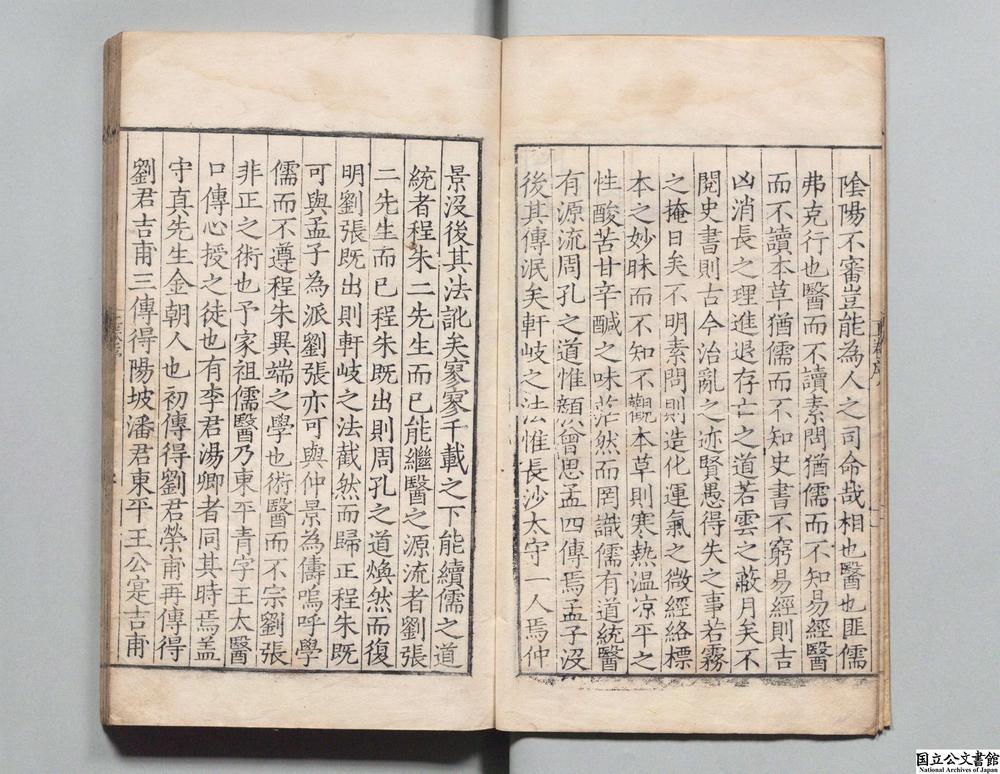 陰陽不審豈能為人之司命哉相也醫也匪儒
弗克行也醫而不讀素問猶儒而不知易經醫
而不讀本草猶儒而不知史書不窮易經則吉
凶消長之理進退存亡之道若雲之蔽月矣不
閱史書則古今治亂之迹賢愚得失之事若霧
之掩日矣不明素問則造化運氣之微經絡標
本之妙昧而不知不觀本草則寒熱温凉平之
性酸苦甘辛醎之味茫然而罔識儒有道統醫
有源流周孔之道惟顔曾思孟四傳焉孟子沒
後其傳泯矣軒岐之法惟長沙太守一人焉仲
景沒後其法訛矣寥寥千載之下能續儒之道
統者程朱二先生而已能繼醫之源流者劉張
二先生而已程朱既出則周孔之道煥然而復
明劉張既出則軒岐之法截然而歸正程朱既
可與孟子為派劉張亦可與仲景為儔嗚呼學
儒而不遵程朱異端之學也術醫而不宗劉張
非正之術也予家祖儒醫乃東平青字王太醫
口傳心授之徒也有李君湯卿者同其時焉盖
守真先生金朝人也初傳得劉君榮甫再傳得
劉君吉甫三傳得陽坡潘君東平王公寔吉甫
国立公文書館
National Archives of Japan